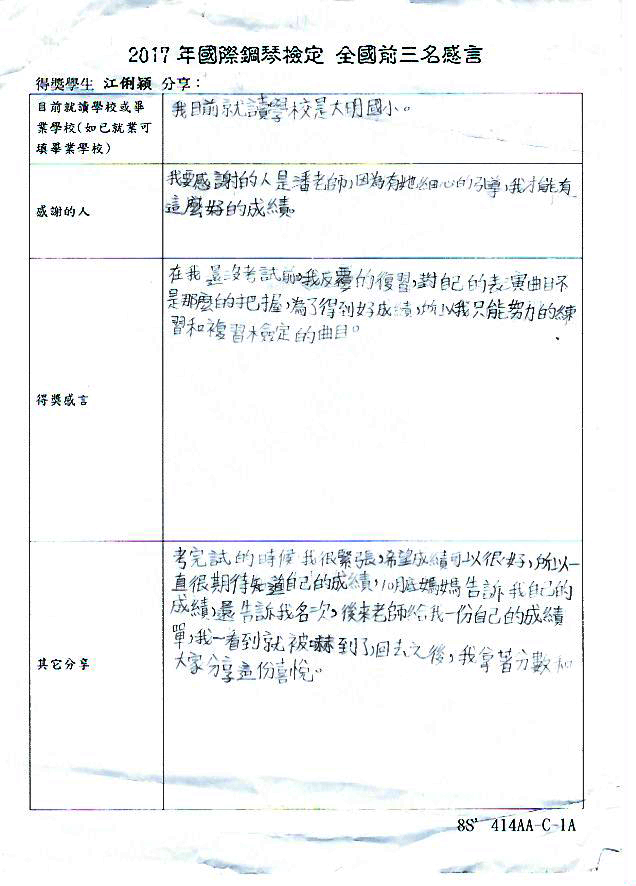 2017 年國際鋼琴檢定 全國前三名感言
得獎學生 江俐穎 分享：
目前就讀學校或畢
業學校(如已就業可
填畢業學校)
我目前就讀學校是大明國小。
感謝的人
我要感謝的人是潘老師,因為有她細心的引導,我才能有
這麼好的成績。
得獎感言
在我還沒考試前,我反覆的復習,對自己的表演曲目不
是那麼的把握,為了得到好成績,所以我只能努力的練
習和複習檢定的曲目。
其它分享
考完試的時候我很緊張,希望成績可以很好,所以一
直很期待知道自己的成績,10月底媽媽告訴我自己的
成績,還告訴我名次,後來老師給我一份自己的成績
單,我一看到就被嚇到了,回去之後,我拿著分數和
大家分享這份喜悅。
8S² 414AA-C-1A